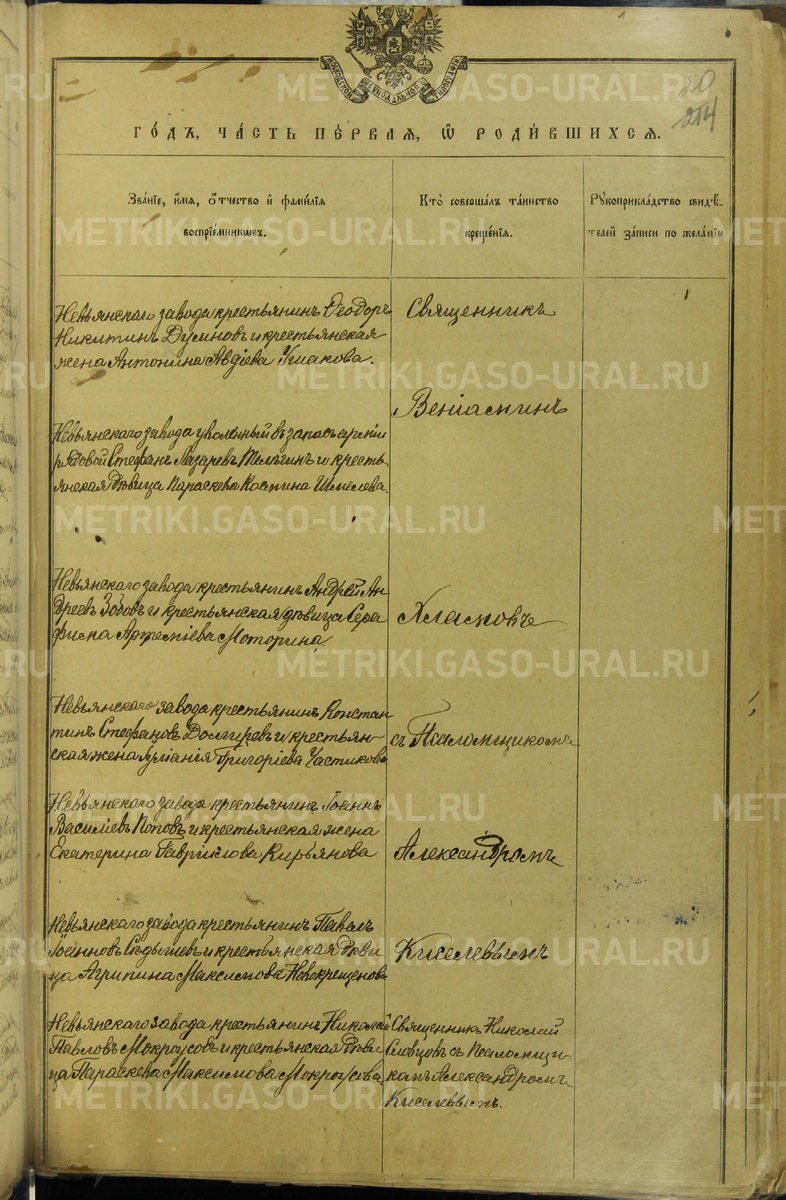 МОСКОВСКОЙ СИНОДАЛЬНОЙ ТИПОГРАФІИ
20
214
го́дъ, ча́сть пе́рваѧ, ѡ҆ роди́вшихсѧ.
Зва́нїе, и҆́мѧ, ѻ҆́тчество и҆ фами́лїѧ
воспрїе́мникѡвъ.
Кто̀ соверша́лъ та́инство
креще́нїѧ.
Рꙋкоприкла́дство свидѣ́-
телей за́писи по жела́нїю
Невьянскаго завода крестьянинъ Ѳеодоръ
Никитинъ Думновъ и крестьянская
жена Антонина Авдіева Ушакова.
Невьянскаго завода уволенный въ запасъ арміи
рядовой Стефанъ Лазаревъ Телѣгинъ и кресть-
янская дѣвица Параскева Космина Шмелева.
Невьянскаго завода крестьянинъ Андрей Ан
дреевъ Зобовъ и крестьянская дѣвица Сера
фима Артеміева Моторина.
Невьянскаго завода крестьянинъ Констан
тинъ Стефановъ Долгиревъ и крестьян-
ская жена Іуліанія Григоріева Частикова
Невьянскаго завода крестьянинъ Іоаннъ
Василіевъ Поповъ и крестьянская жена
Екатерина Гавріилова Кирьянова
Невьянскаго завода крестьянинъ Павелъ
Іоанновъ Сѣдышевъ и крестьянская дѣви
ца Агрипина Максимова Новокрещенова
Невьянскаго завода крестьянинъ Николай
Павловъ Мокроусовъ и крестьянская дѣви
ца Параскева Максимова Мокроусова
Священникъ
Веніаминъ
Хламовъ
съ Псаломщикомъ
Александромъ
Киселевымъ
Священникъ Николай
Словцовъ съ Псаломщи-
комъ Александромъ
Киселевымъ.
METRIKI.GASO-URAL.RU